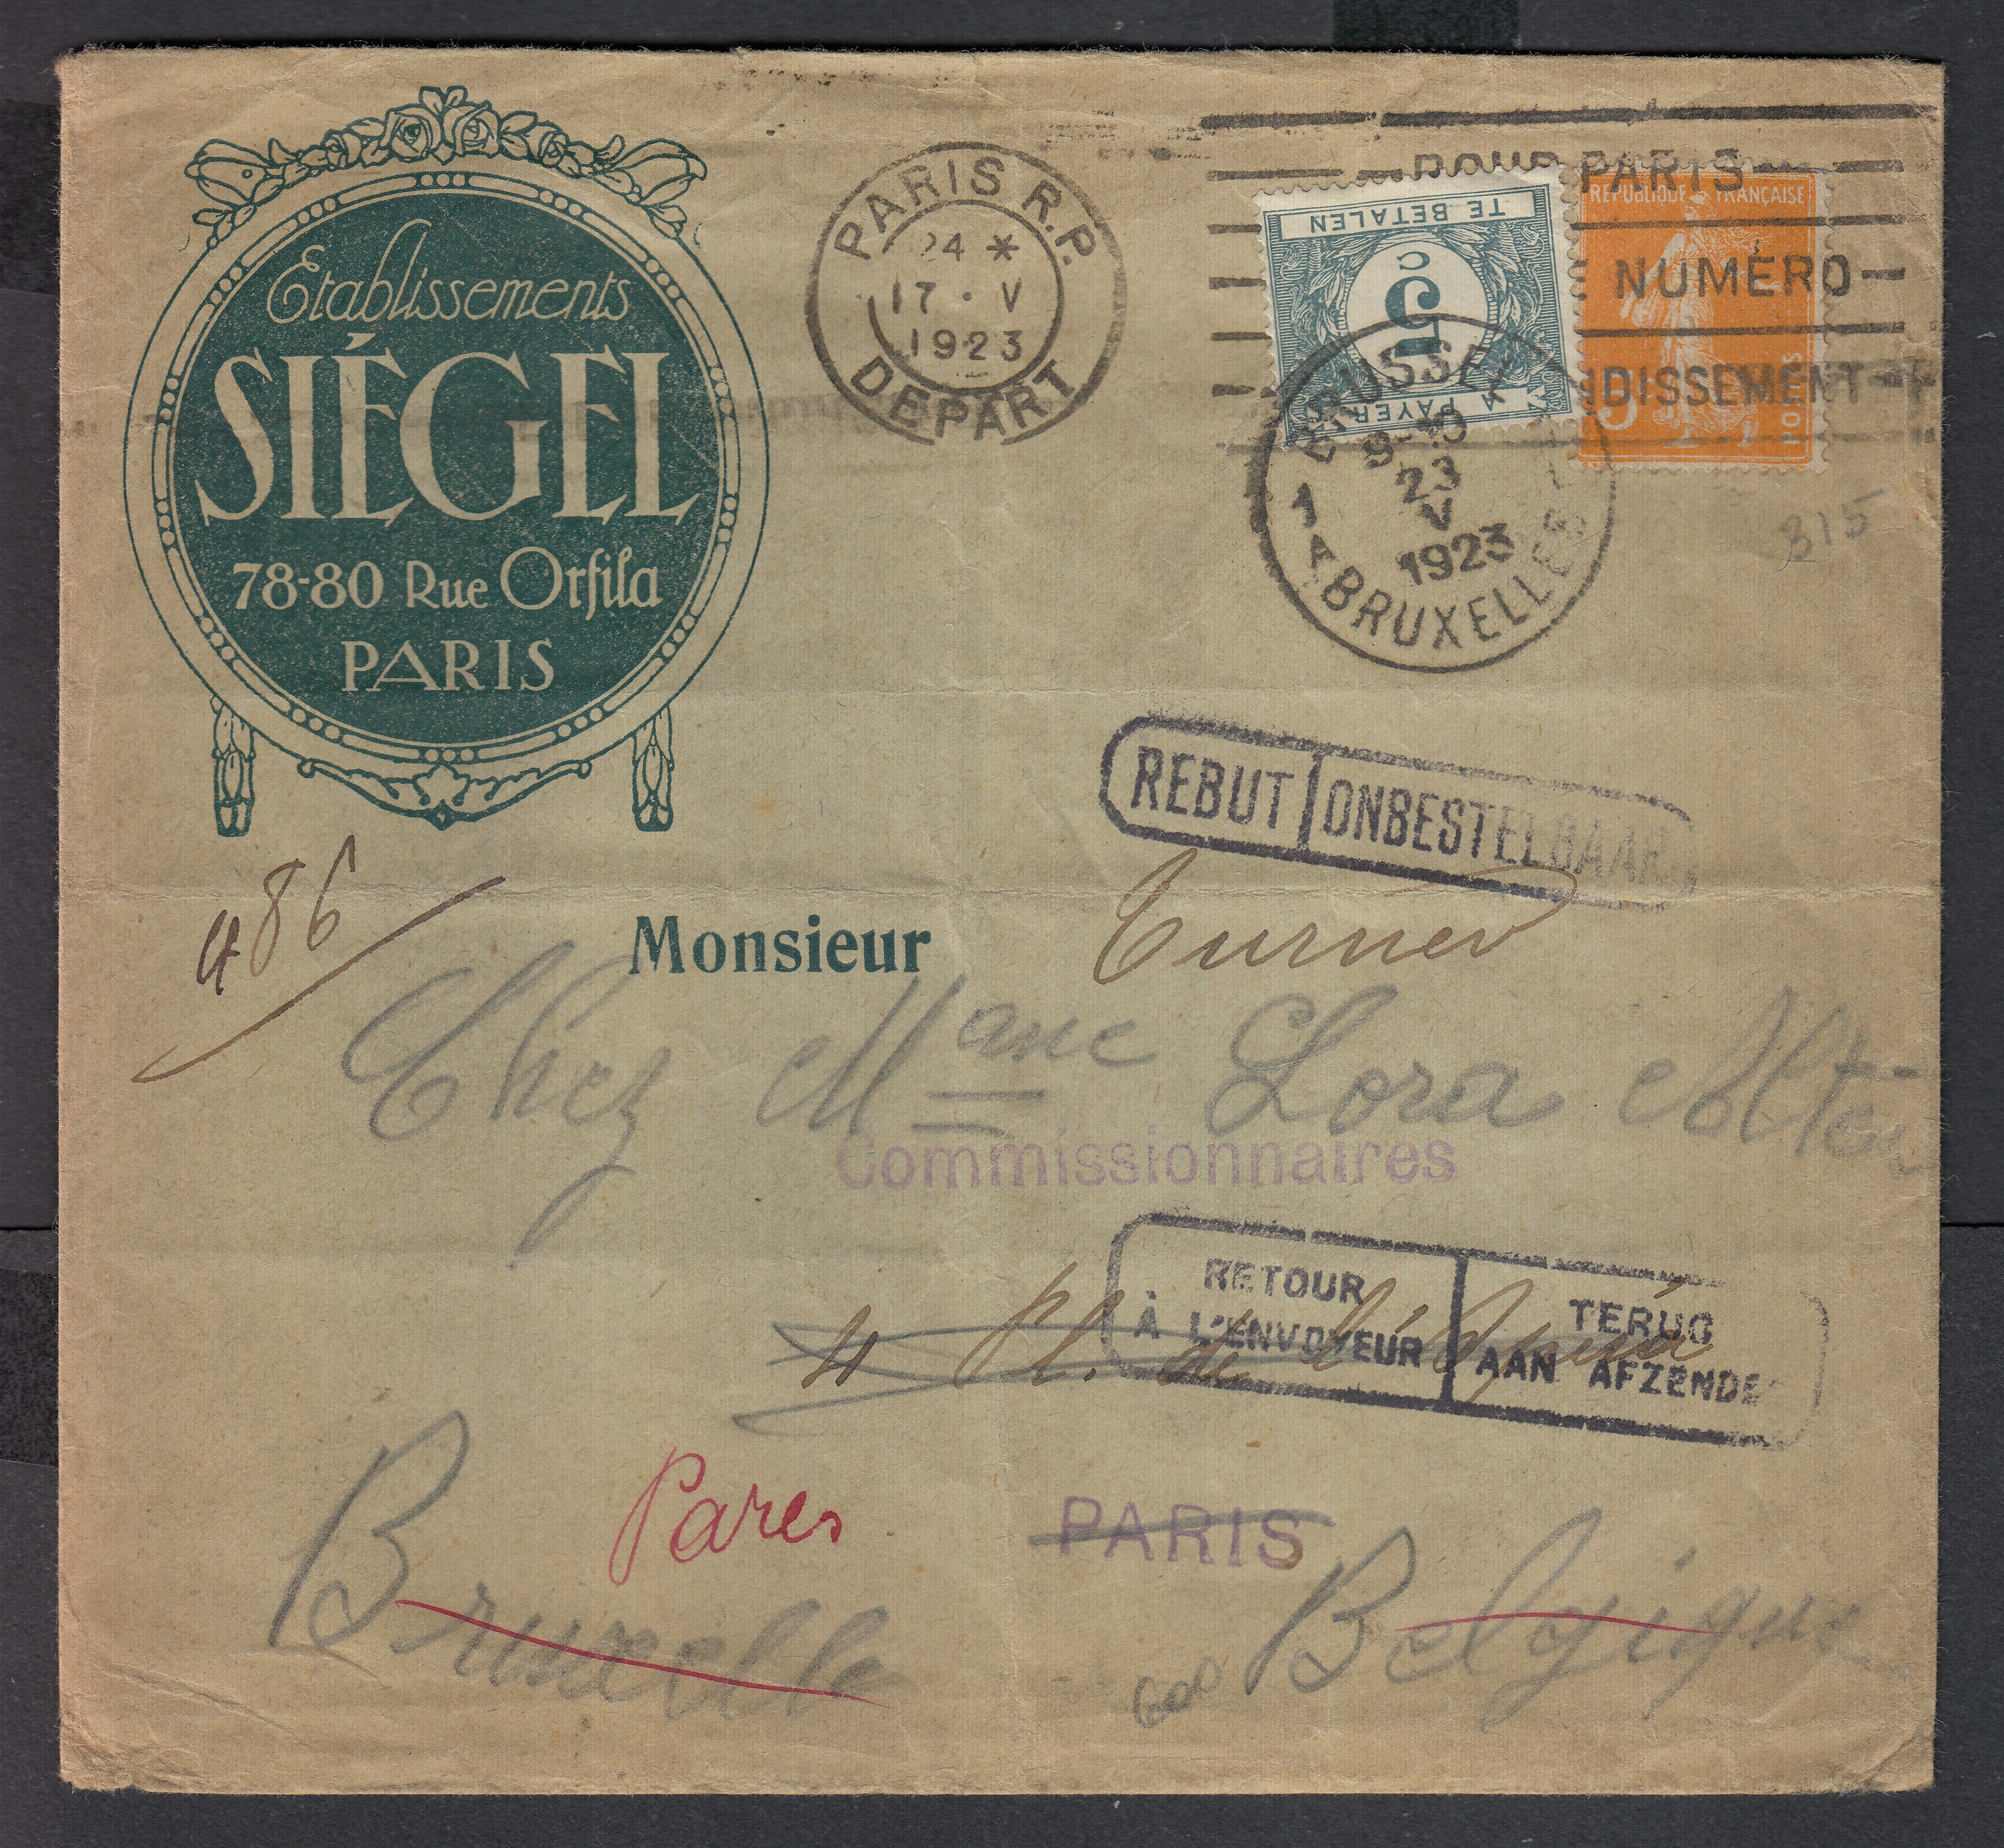 Etablissements
SIÉGEL
78-80 Rue Orfila
PARIS
PARIS R.P.
24 *
17 · V
1923
DEPART
pour PARIS
NUMÉRO
DISSEMENT
TE BETALEN
5
c
A PAYER
REPUBLIQUE FRANÇAISE
5
POSTES
BRUSSEL
9-10
23
V
1923
1 A BRUXELLES
815
REBUT ONBESTELBAAR
486
Monsieur Turner
Chez Mme Lora
Commissionnaires
RETOUR
À L'ENVOYEUR
TERUG
AAN AFZENDE
4 Pl. de l'Opéra
Pares
PARIS
Bruxelle Belgique